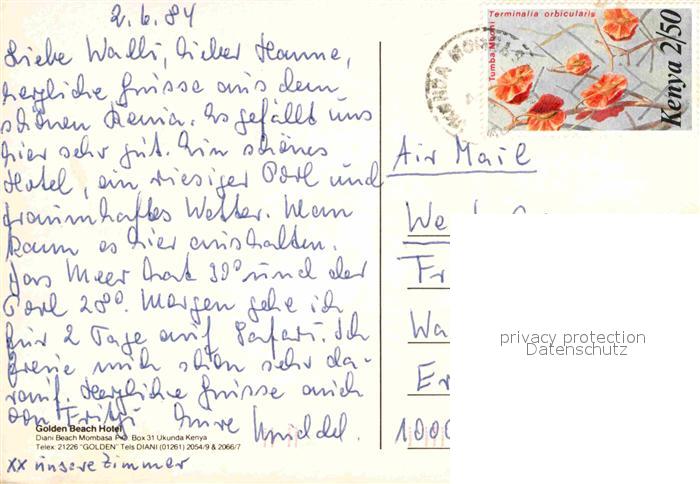 2.6.84
Liebe Walli, lieber Hanne,
herzliche Grüsse aus dem
schönen Kenia. Es gefällt uns
hier sehr gut. Ein schönes
Hotel, ein riesiger Pool und
traumhaftes Wetter. Man
kann es hier aushalten.
Das Meer hat 30° und der
Pool 28°. Morgen gehe ich
für 2 Tage auf Safari. Ich
freue mich schon sehr da-
rauf. Herzliche Grüsse auch
von Fritz. Eure
Golden Beach Hotel
Diani Beach Mombasa P.O. Box 31 Ukunda Kenya
Telex: 21226 "GOLDEN" Tels DIANI (01261) 2054/9 & 2066/7
xx unsere Zimmer
Terminalia orbicularis
Kenya 2/50
Air Mail
Fr
Wa
Er
1000
privacy protection
Datenschutz